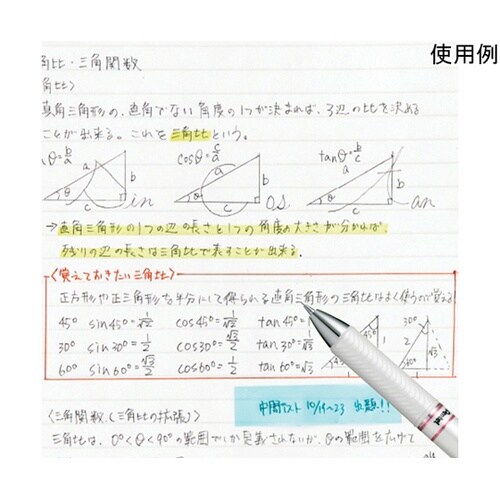 使用例
角比・三角関数
角比>
直角三角形の、直角でない角度の1つが決まれば、3辺の比を決める
ことが出来る。これを三角比という。
sinθ=b/a cosθ=c/a tanθ=b/c
a b c θ in
a b c θ os
a b c θ an
→直角三角形の1つの辺の長さと1つの角度の大きさが分かれば、
残りの辺の長さは三角比で表すことが出来る。
<覚えておきたい三角比>
正方形や正三角形を半分にして得られる直角三角形の三角比はよく使うので覚える!
45° sin45°=1/√2 cos45°=1/√2 tan45°=1
30° sin30°=1/2 cos30°=√3/2 tan30°=
60° sin60°=√3/2 cos60°=1/2 tan60°=√3
45° 1 30° 2 √3
中間テスト 10/19〜23 出題!!
<三角関数(三角比の拡張)>
三角比は、0°<θ<90°の範囲でしか定義されないが、θの範囲を広げて